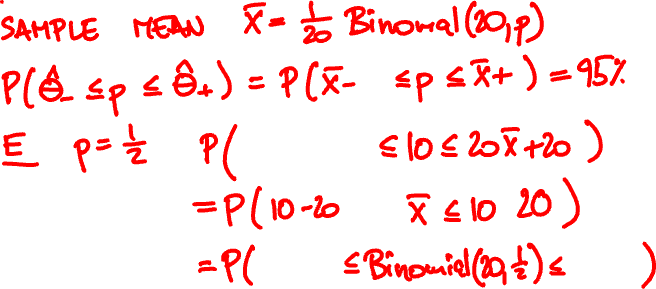 SAMPLE MEAN X̄ = 1/20 Binomial(20,p)
P(θ̂₋ ≤ p ≤ θ̂₊) = P(X̄- ≤ p ≤ X̄+ ) = 95%
E p = 1/2 P( ≤ 10 ≤ 20X̄+20 )
= P(10-20 X̄ ≤ 10 20 )
= P( ≤ Binomial(20,1/2) ≤ )